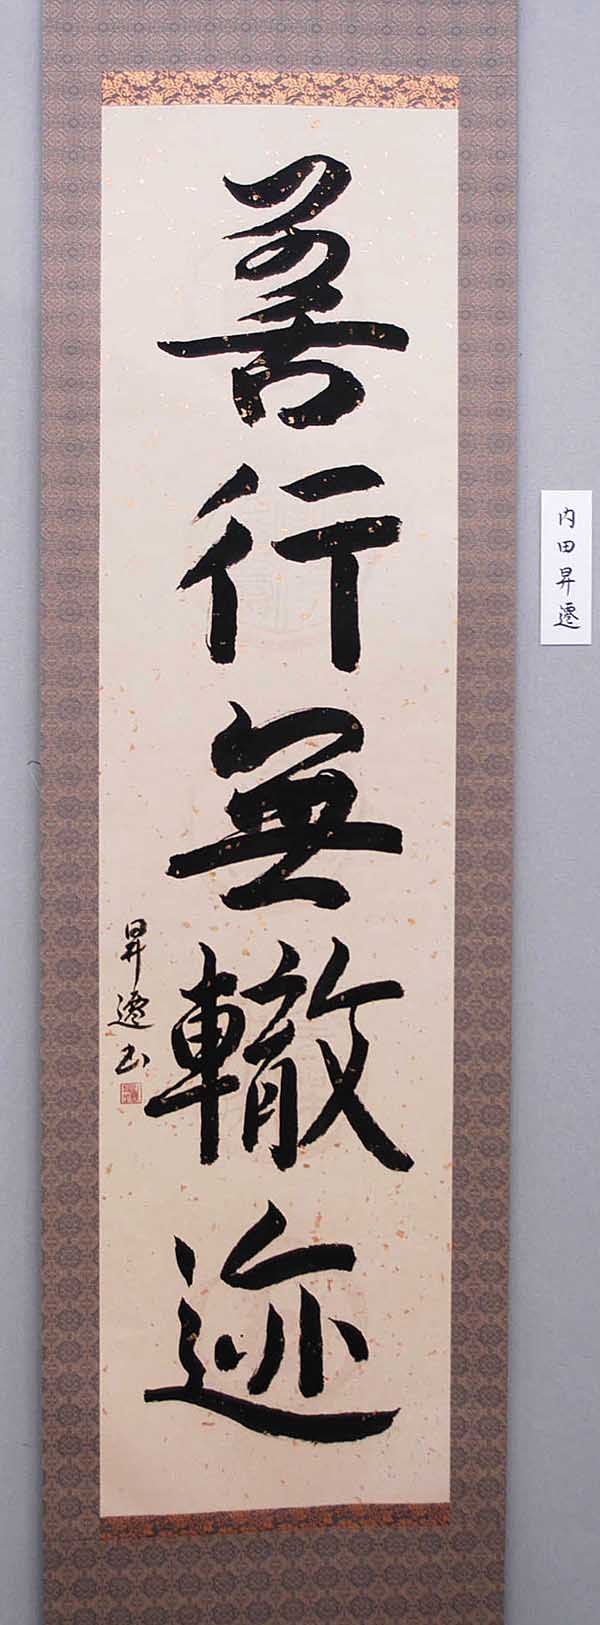 善行無轍迹
昇遷書
内田昇遷